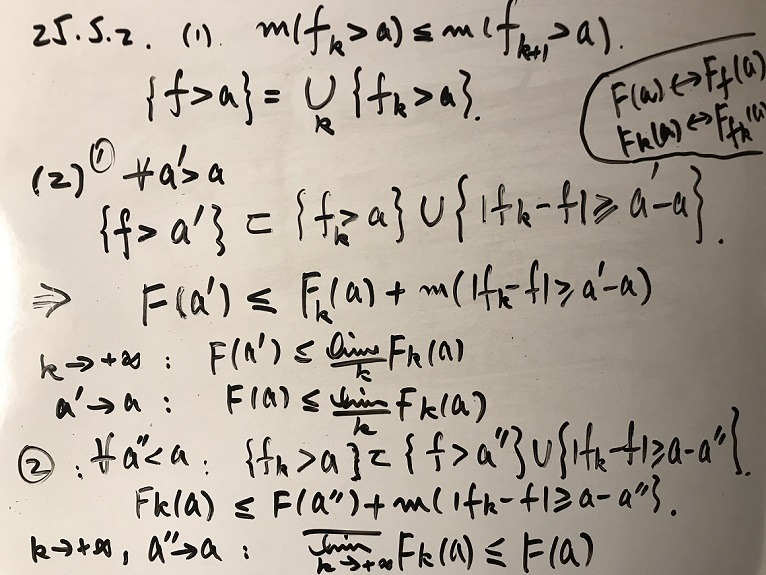 25.5.2. (1) m(f_k>a) ≤ m(f_{k+1}>a).
{f>a} = ∪_k {f_k>a}.
F(a) ↔ F_f(a)
F_k(a) ↔ F_{f_k}(a)
(2) ① ∀a'>a
{f>a'} ⊂ {f_k>a} ∪ {|f_k-f| ≥ a'-a}.
⇒ F(a') ≤ F_k(a) + m(|f_k-f| ≥ a'-a)
k→+∞ : F(a') ≤ \underline{lim}_k F_k(a)
a'→a : F(a) ≤ \underline{lim}_k F_k(a)
②. ∀a''<a. {f_k>a} ⊂ {f>a''} ∪ {|f_k-f| ≥ a-a''}.
F_k(a) ≤ F(a'') + m(|f_k-f| ≥ a-a''}.
k→+∞, a''→a : \overline{lim}_{k→+∞} F_k(a) ≤ F(a)